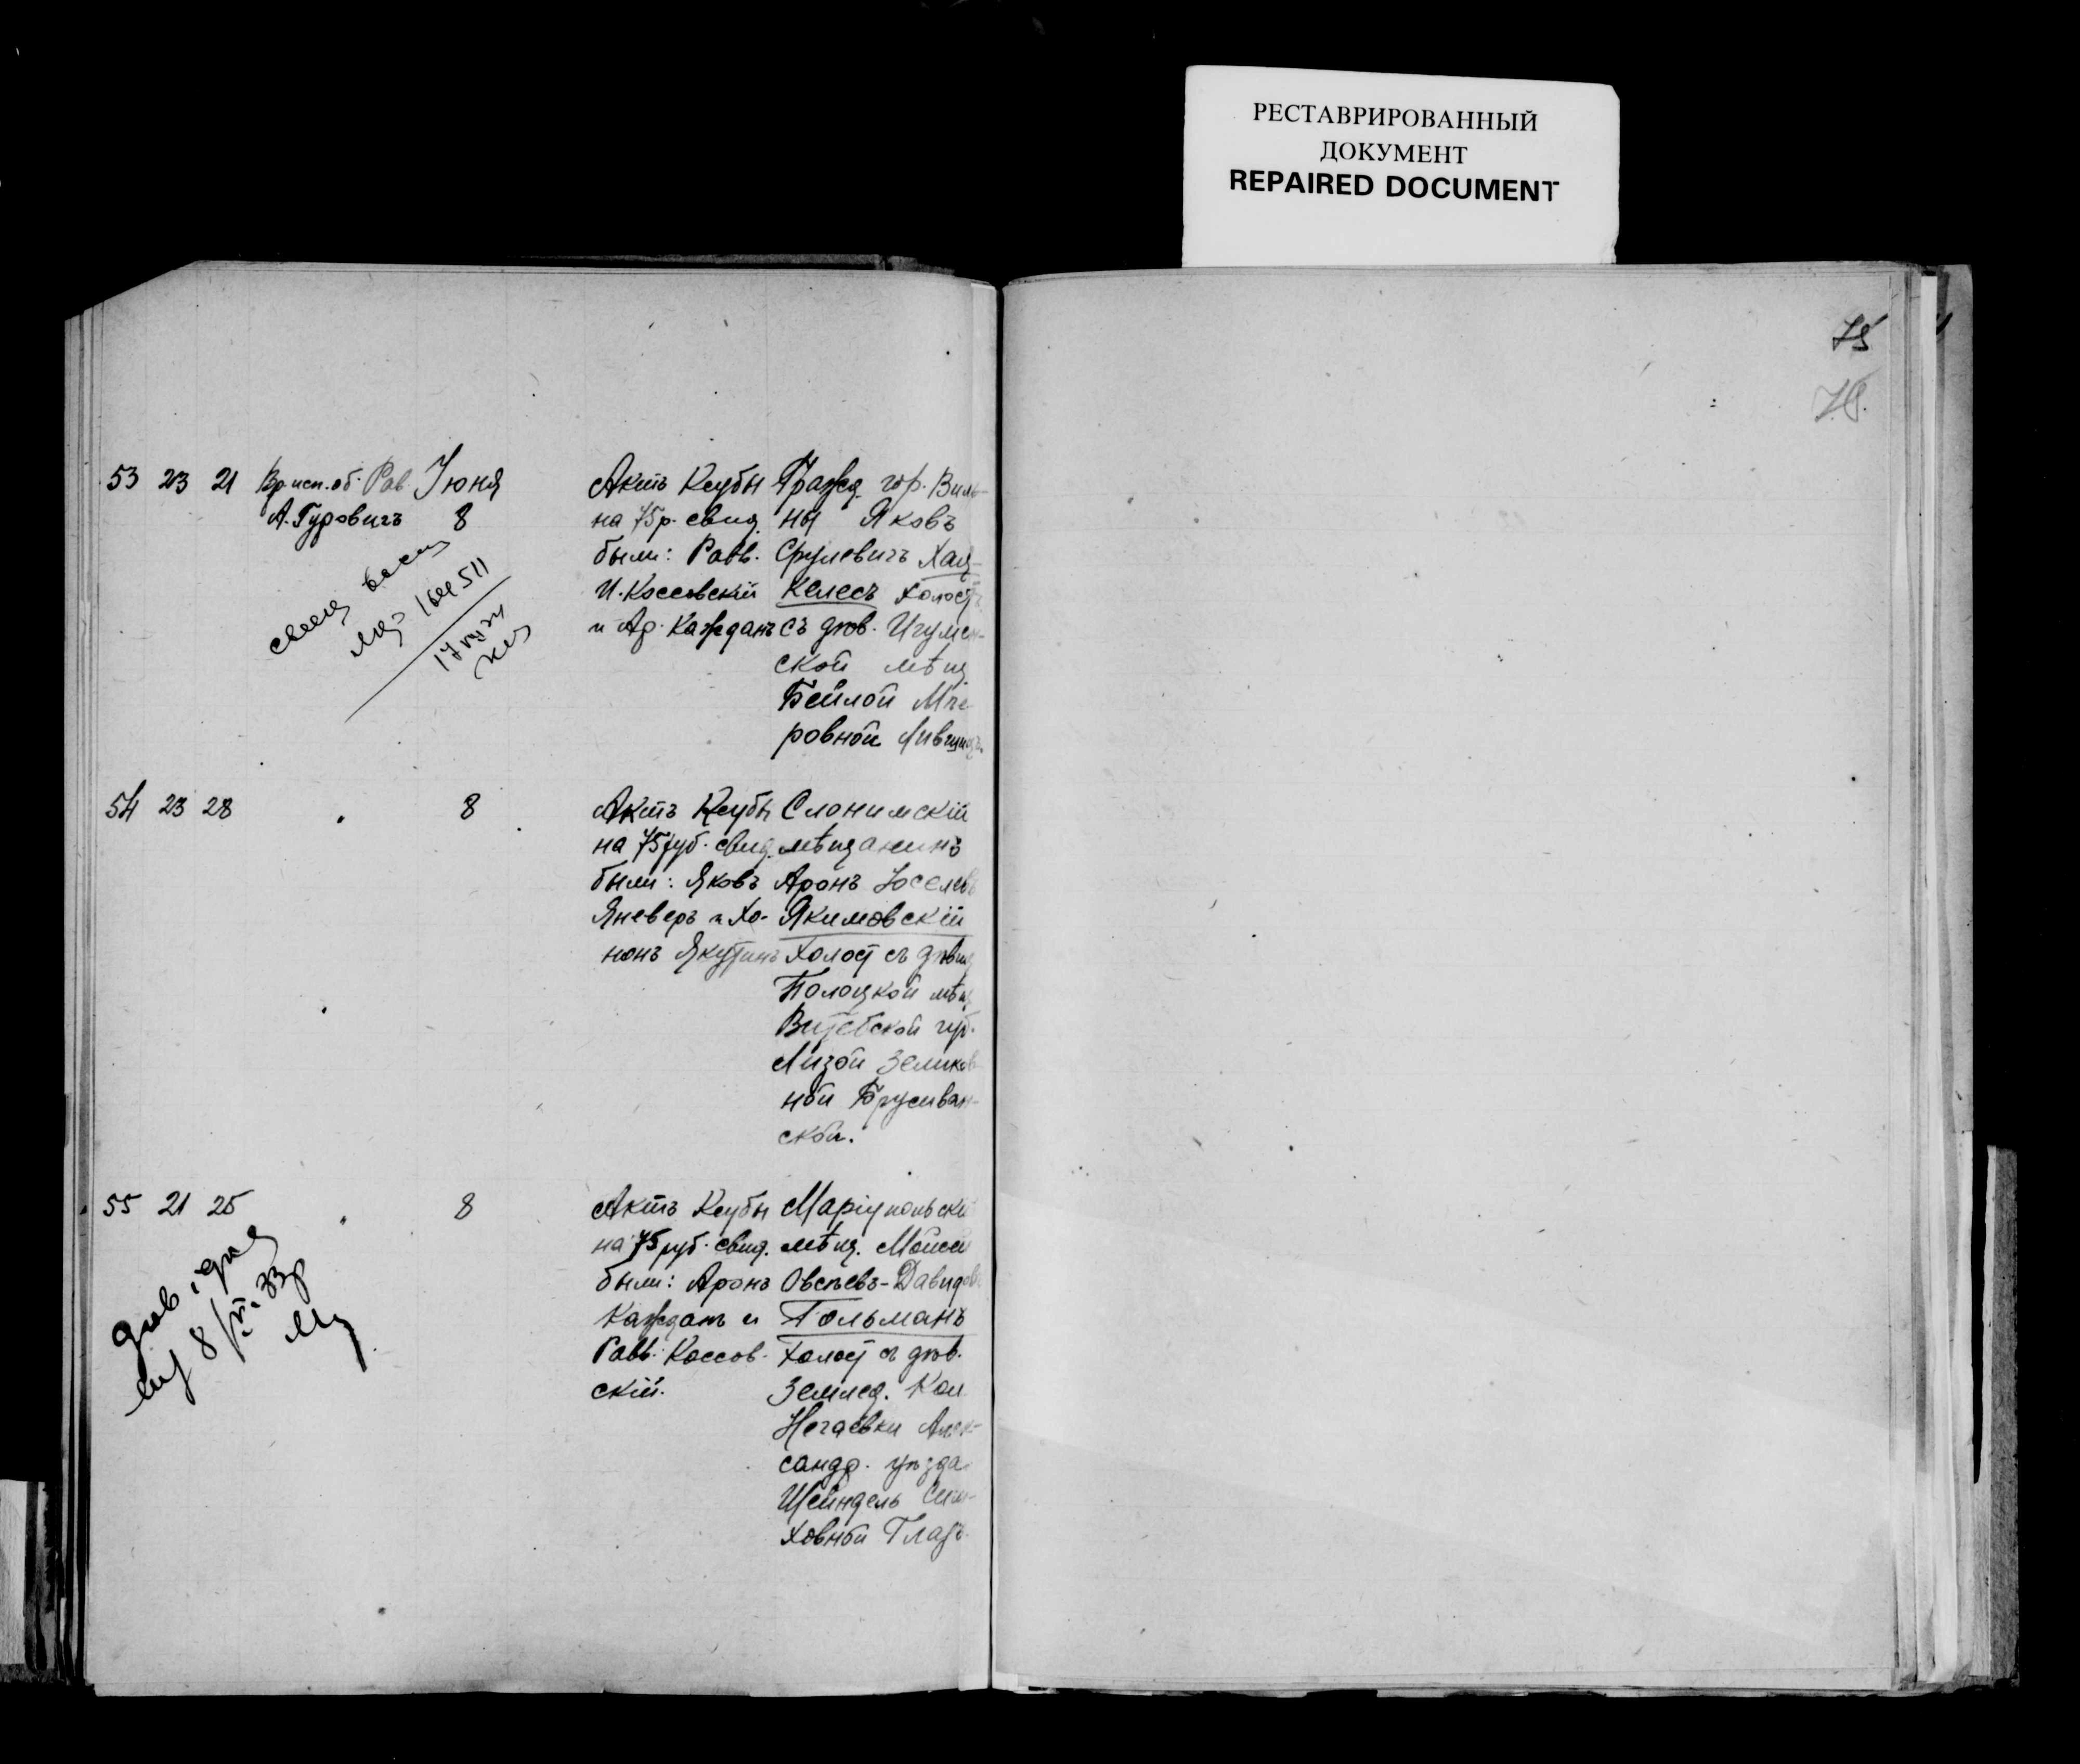 РЕСТАВРИРОВАННЫЙ
ДОКУМЕНТ
REPAIRED DOCUMENT
75
53 23 21 Вр. исп. об. Рав. Іюня
А. Гуровичъ 8
17
Актъ Ксубы
на 75 р. свид.
были: Равв.
И. Коссовскій
и Ар. Кажданъ
Гражд. гор. Виль-
ны Яковъ
Срулевичъ Хац-
келесъ холост
съ дѣв. Игумен-
ской мѣщ.
Бейлой Мее-
ровной Лившицъ
54 23 28 8
Актъ Ксубы
на 75 руб. свид.
были: Яковъ
Яневеръ и Хо-
нонъ Якутинъ
Слонимскій
мѣщанинъ
Аронъ Іоселевъ
Якимовскій
холост съ дѣвиц
Полоцкой мѣщ
Витебской губ.
Лизой Зелико-
ной
ской.
55 21 25 8
дѣв.
8/VI. 33
Актъ Ксубы
на 75 руб. свид.
были: Аронъ
Кажданъ и
Равв. Коссов-
скій.
Маріупольскій
мѣщ. Мойсей
Овсѣевъ-Давидовъ
Гольманъ
холост съ дѣв.
Землед. Кол
Нечаевки Алек-
сандр. уѣзда
Шейндель
ховной Глазъ.